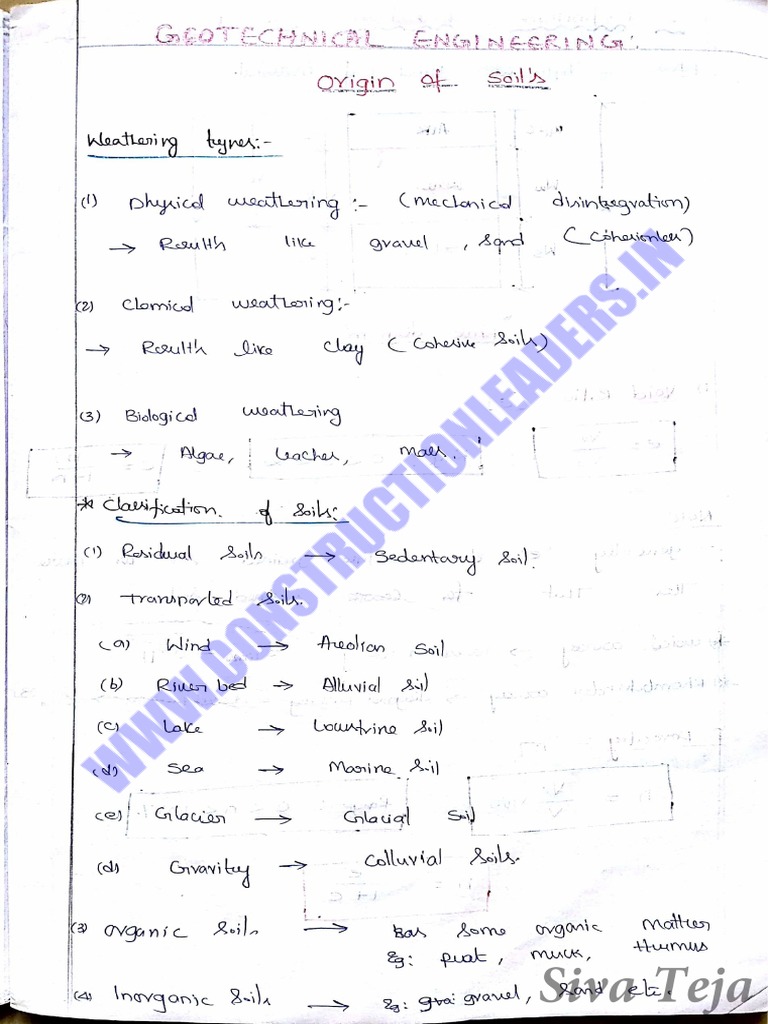 GEOTECHNICAL ENGINEERING:
Origin of Soil's
Weathering types:-
(1) Physical weathering :- (Mechanical disintegration)
→ Results like gravel, sand (Cohesionless)
(2) Chemical weathering:-
→ Results like clay (Cohesive Soils)
(3) Biological weathering
→ Algae,
* Classification of Soils:
(1) Residual Soils → Sedentary Soil.
(2) Transported Soils.
(a) Wind → Aeolian Soil
(b) River bed → Alluvial Soil
(c) Lake → Lacustrine Soil
(d) Sea → Marine Soil
(e) Glacier → Glacial Soil
(d) Gravity → Colluvial Soils.
(3) Organic Soils → Has some organic matter
Eg: peat, muck, Humus
(4) Inorganic Soils → Eg: gravel, Sand etc.
WWW.CONSTRUCTIONLEADERS.IN
Siva Teja